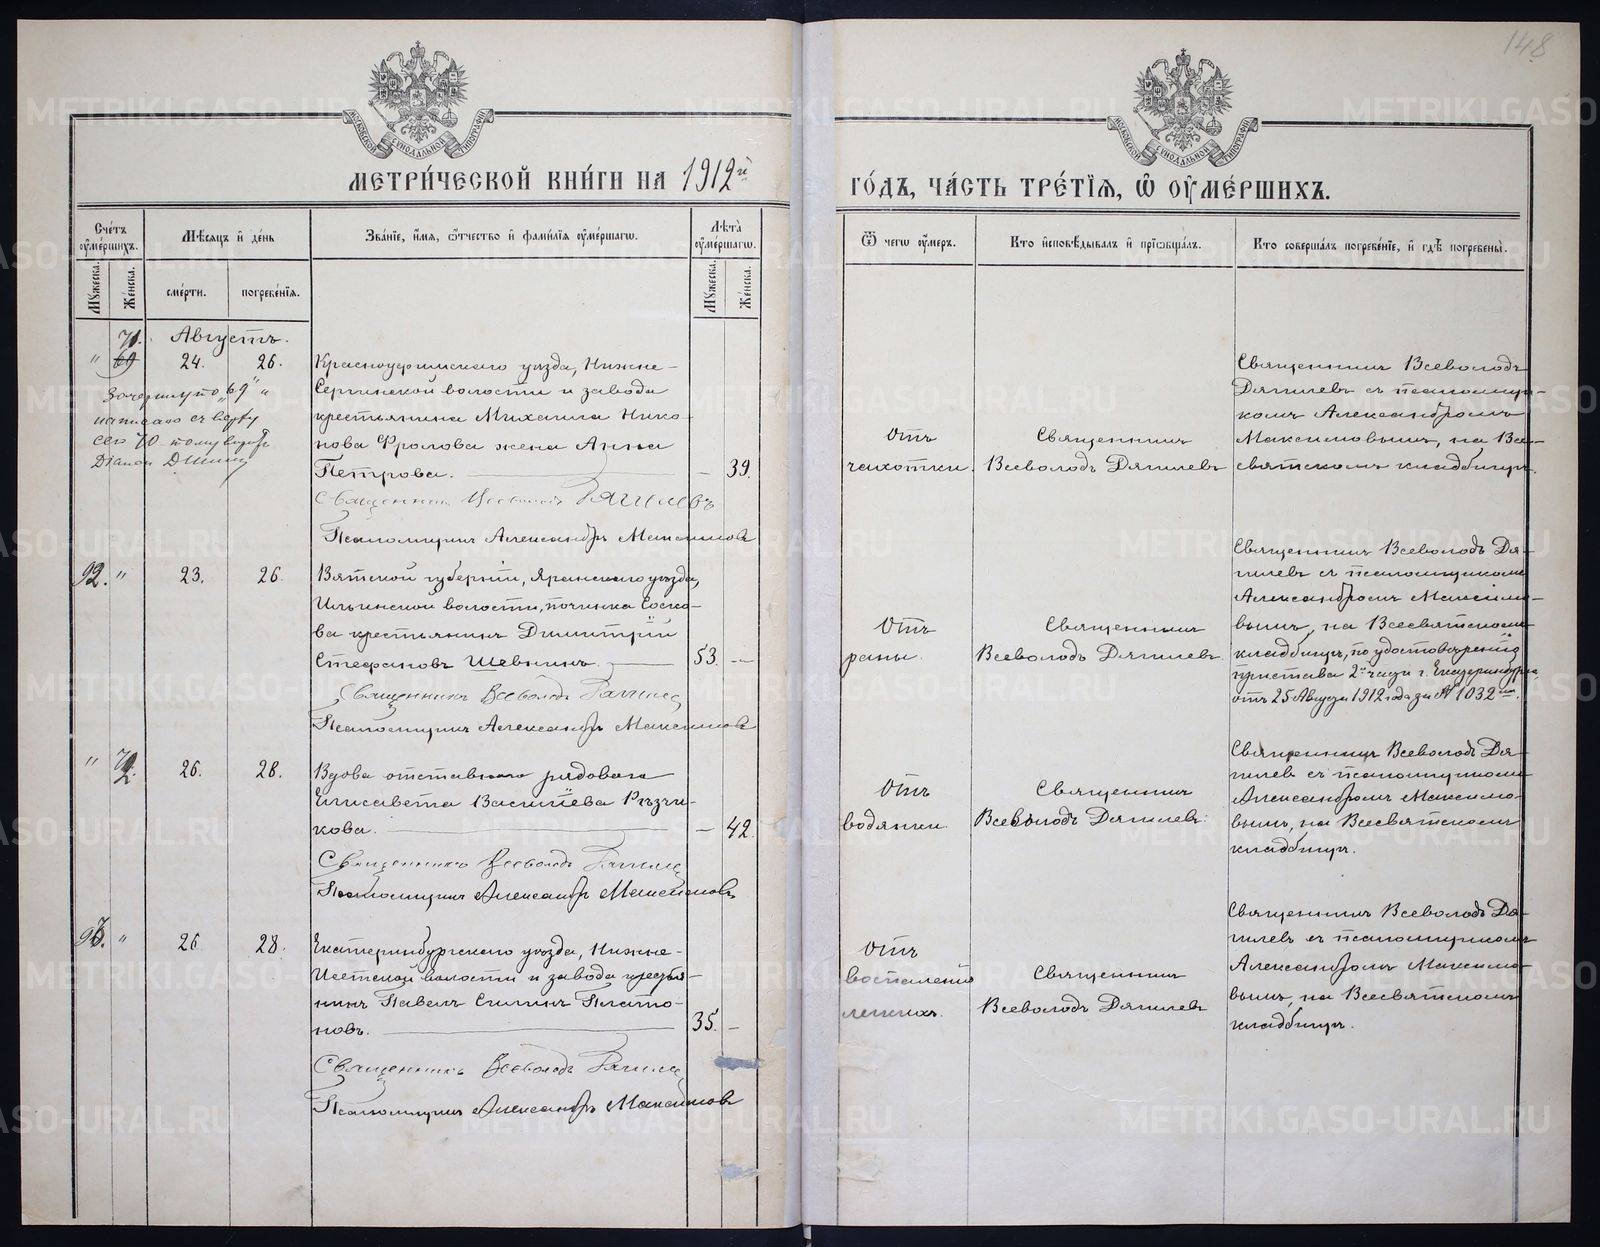 148
МОСКОВСКОЙ СѴНОДАЛЬНОЙ ТИПОГРАФІИ
МОСКОВСКОЙ СѴНОДАЛЬНОЙ ТИПОГРАФІИ
МЕТРИ́ЧЕСКОЙ КНИ́ГИ НА 1912й
ГО́ДЪ, ЧА́СТЬ ТРЕ́ТІѦ, Ѡ҆ ОУ҆МЕ́РШИХЪ.
Сче́тъ оу҆ме́ршихъ.
Мꙋ́жеска.
Же́нска.
Мѣ́сяцъ и҆ де́нь
сме́рти.
погребе́нїѧ.
Зва́нїе, и҆́мѧ, ѻ҆́тчество и҆ фами́лїѧ оу҆ме́ршагѡ.
Лѣ́та̀ оу҆ме́ршагѡ.
Мꙋ́жеска.
Же́нска.
Ѿ чегѡ̀ оу҆́меръ.
Кто̀ и҆сповѣ́дывалъ и҆ прїѡбща́лъ.
Кто̀ соверша́лъ погребе́нїе, и҆ гдѣ̀ погребены̀.
Августъ.
" 69 24. 26.
Зачеркнуто „69"
написано съ верху
сего 70
Красноуфимскаго уѣзда, Нижне-
Сергинской волости и завода
крестьянина Михаила Нико-
нова Фролова жена Анна
Петрова. — 39.
Священникъ Всеволодъ Дягилевъ
Псаломщикъ Александръ Максимовъ
Отъ
чахотки.
Священникъ
Всеволодъ Дягилевъ
Священникъ Всеволодъ
Дягилевъ съ псаломщи-
комъ Александромъ
Максимовымъ, на Все-
святскомъ кладбищѣ.
92. " 23. 26.
Вятской губерніи, Яранскаго уѣзда,
Ильинской волости, починка
крестьянинъ Димитрій
Стефановъ Шевнинъ. 53. —
Священникъ Всеволодъ Дягилевъ
Псаломщикъ Александръ Максимовъ
Отъ
раны.
Священникъ
Всеволодъ Дягилевъ.
Священникъ Всеволодъ Дя-
гилевъ съ псаломщикомъ
Александромъ Максимо-
вымъ, на Всесвятскомъ
кладбищѣ, по удостовѣренію
пристава 2й части г. Екатеринбурга
отъ 25 Августа 1912 года за № 1032мъ.
" 72. 26. 28.
Вдова отставного рядового
Елисавета Васильева Рѣзчи-
кова. — 42.
Священникъ Всеволодъ Дягилевъ
Псаломщикъ Александръ Максимовъ
Отъ
водянки.
Священникъ
Всеволодъ Дягилевъ.
Священникъ Всеволодъ Дя-
гилевъ съ псаломщикомъ
Александромъ Максимо-
вымъ, на Всесвятскомъ
кладбищѣ.
93. " 26 28.
Екатеринбургскаго уѣзда, Нижне-
Исетской волости и завода кресть-
нинъ Павелъ Силинъ Плато-
новъ. 35. —
Священникъ Всеволодъ Дягилевъ
Псаломщикъ Александръ Максимовъ
Отъ
воспаленія
легкихъ.
Священникъ
Всеволодъ Дягилевъ
Священникъ Всеволодъ Дя-
гилевъ съ псаломщикомъ
Александромъ Максимо-
вымъ, на Всесвятскомъ
кладбищѣ.
METRIKI.GASO-URAL.RU